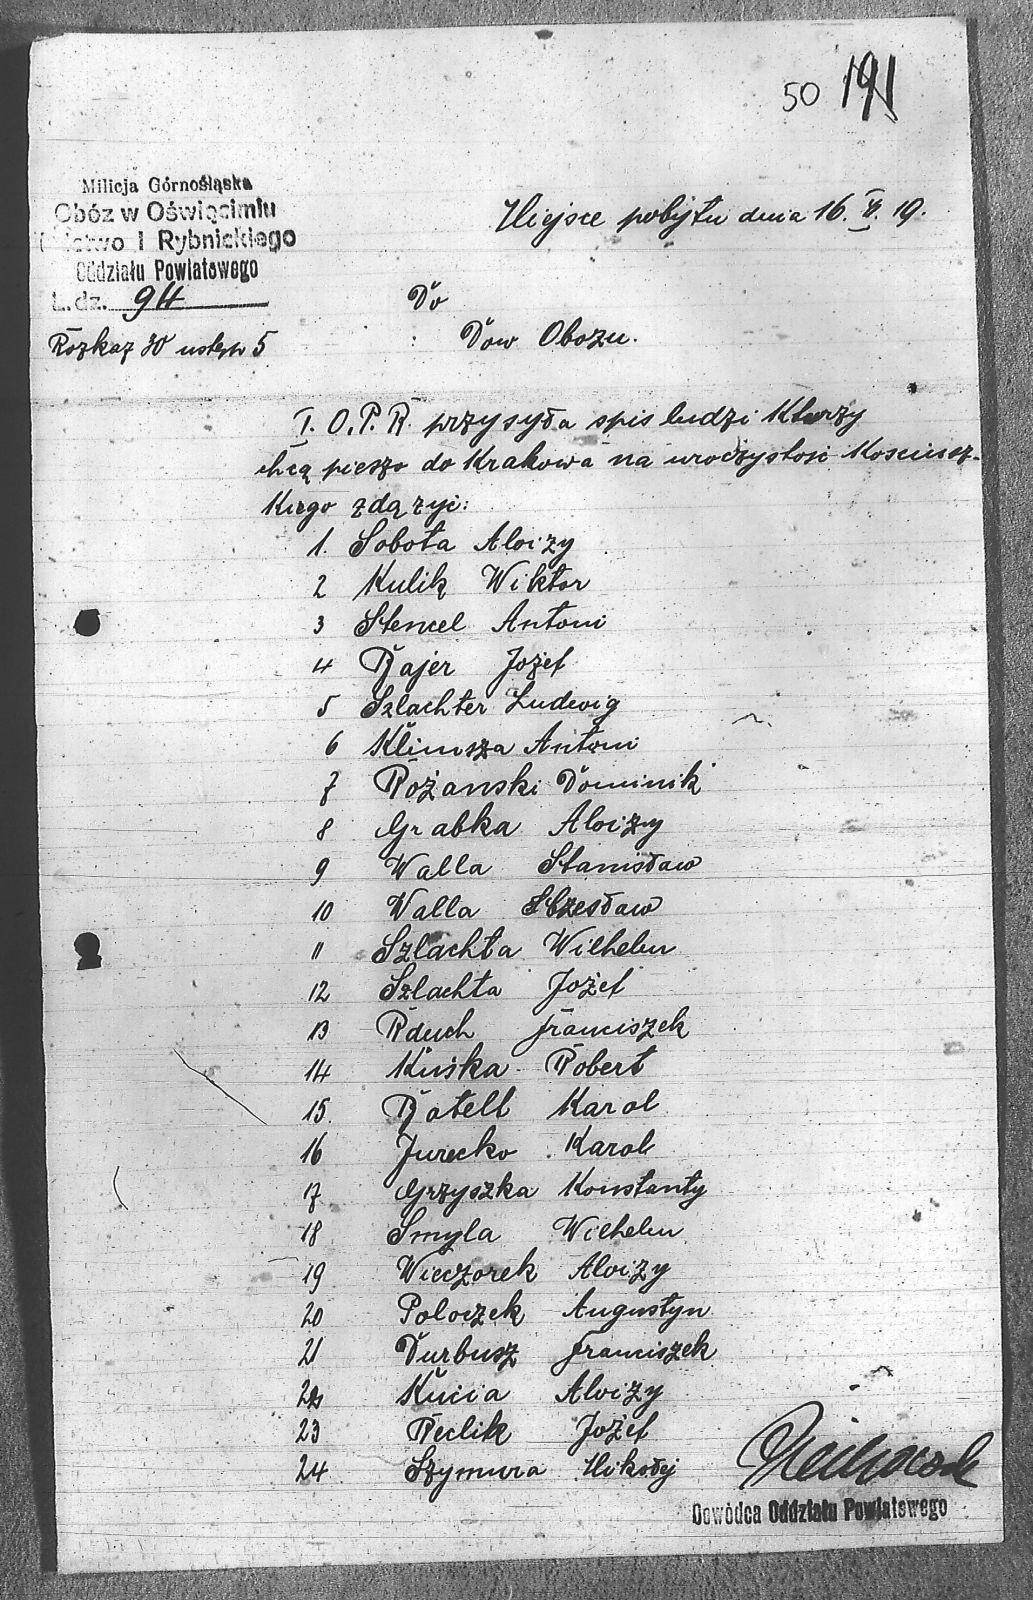 50 191
Milicja Górnośląska
Obóz w Oświęcimiu
I Rybnickiego
Oddziału Powiatowego
L. dz. 94
Rozkaz 30 ustęp 5
Miejsce pobytu dnia 16. VI. 19.
Do
Dow Obozu.
I. O. P. R. przysyła spis ludzi którzy
chcą pieszo do Krakowa na uroczystość Kosciusz-
kiego zdążyć:
1. Sobota Aloizy
2 Kulik Wiktor
3 Stencel Antoni
4 Bajer Jożef
5 Szlachter Ludewig
6 Klimsza Antoni
7 Różanski Dominik
8 Grabka Aloizy
9 Walla Stanisław
10 Walla Czesław
11 Szlachta Wilhelm
12 Szlachta Jożef
13 Rduch Franciszek
14 Kuśka Robert
15. Botell Karol
16 Jurecko Karol
17 Gryszka Konstanty
18 Smyla Wilhelm
19 Wieczorek Aloizy
20 Poloczek Augustyn
21 Durbusz Franciszek
22 Kucia Aloizy
23 Reclik Jożef
24 Szymura Mikołej
Dowódca Oddziału Powiatowego